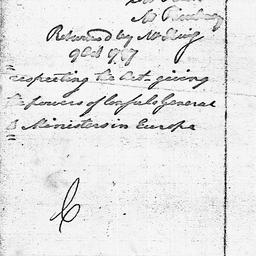 Mr
Returned by Mr King
9 Oct 1787
respecting the Act giving
the powers of Consuls General
to Ministers in Europe